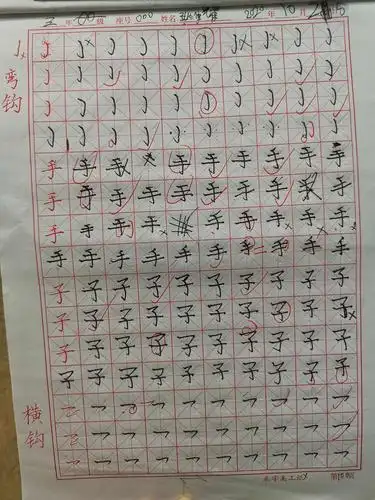 年 级 座号 000 姓名 2020 年 10 月 日
弯钩
亅 亅 亅 亅 亅 亅 亅 亅 亅 亅
亅 亅 亅 亅 亅 亅 亅 亅 亅 亅
亅 亅 亅 亅 亅 亅 亅 亅 亅 亅
亅 亅 亅 亅 亅 亅 亅 亅 亅 亅
手 手 手 手 手 手 手 手 手
手 手 手 手 手 手 手 手 手 手
手 手 手 手 手 手 手 手 手
手 手 手 手 手 手 手 手 手 手
子 子 子 子 子 子 子 子 子 子
子 子 子 子 子 子 子 子 子 子
子 子 子 子 子 子 子 子 子 子
子 子 子 子 子 子 子 子 子 子
横钩
乛 乛 乛 乛 乛 乛 乛 乛 乛 乛
乛 乛 乛 乛 乛 乛 乛 乛 乛 乛
乛 乛 乛 乛 乛 乛 乛 乛 乛 乛